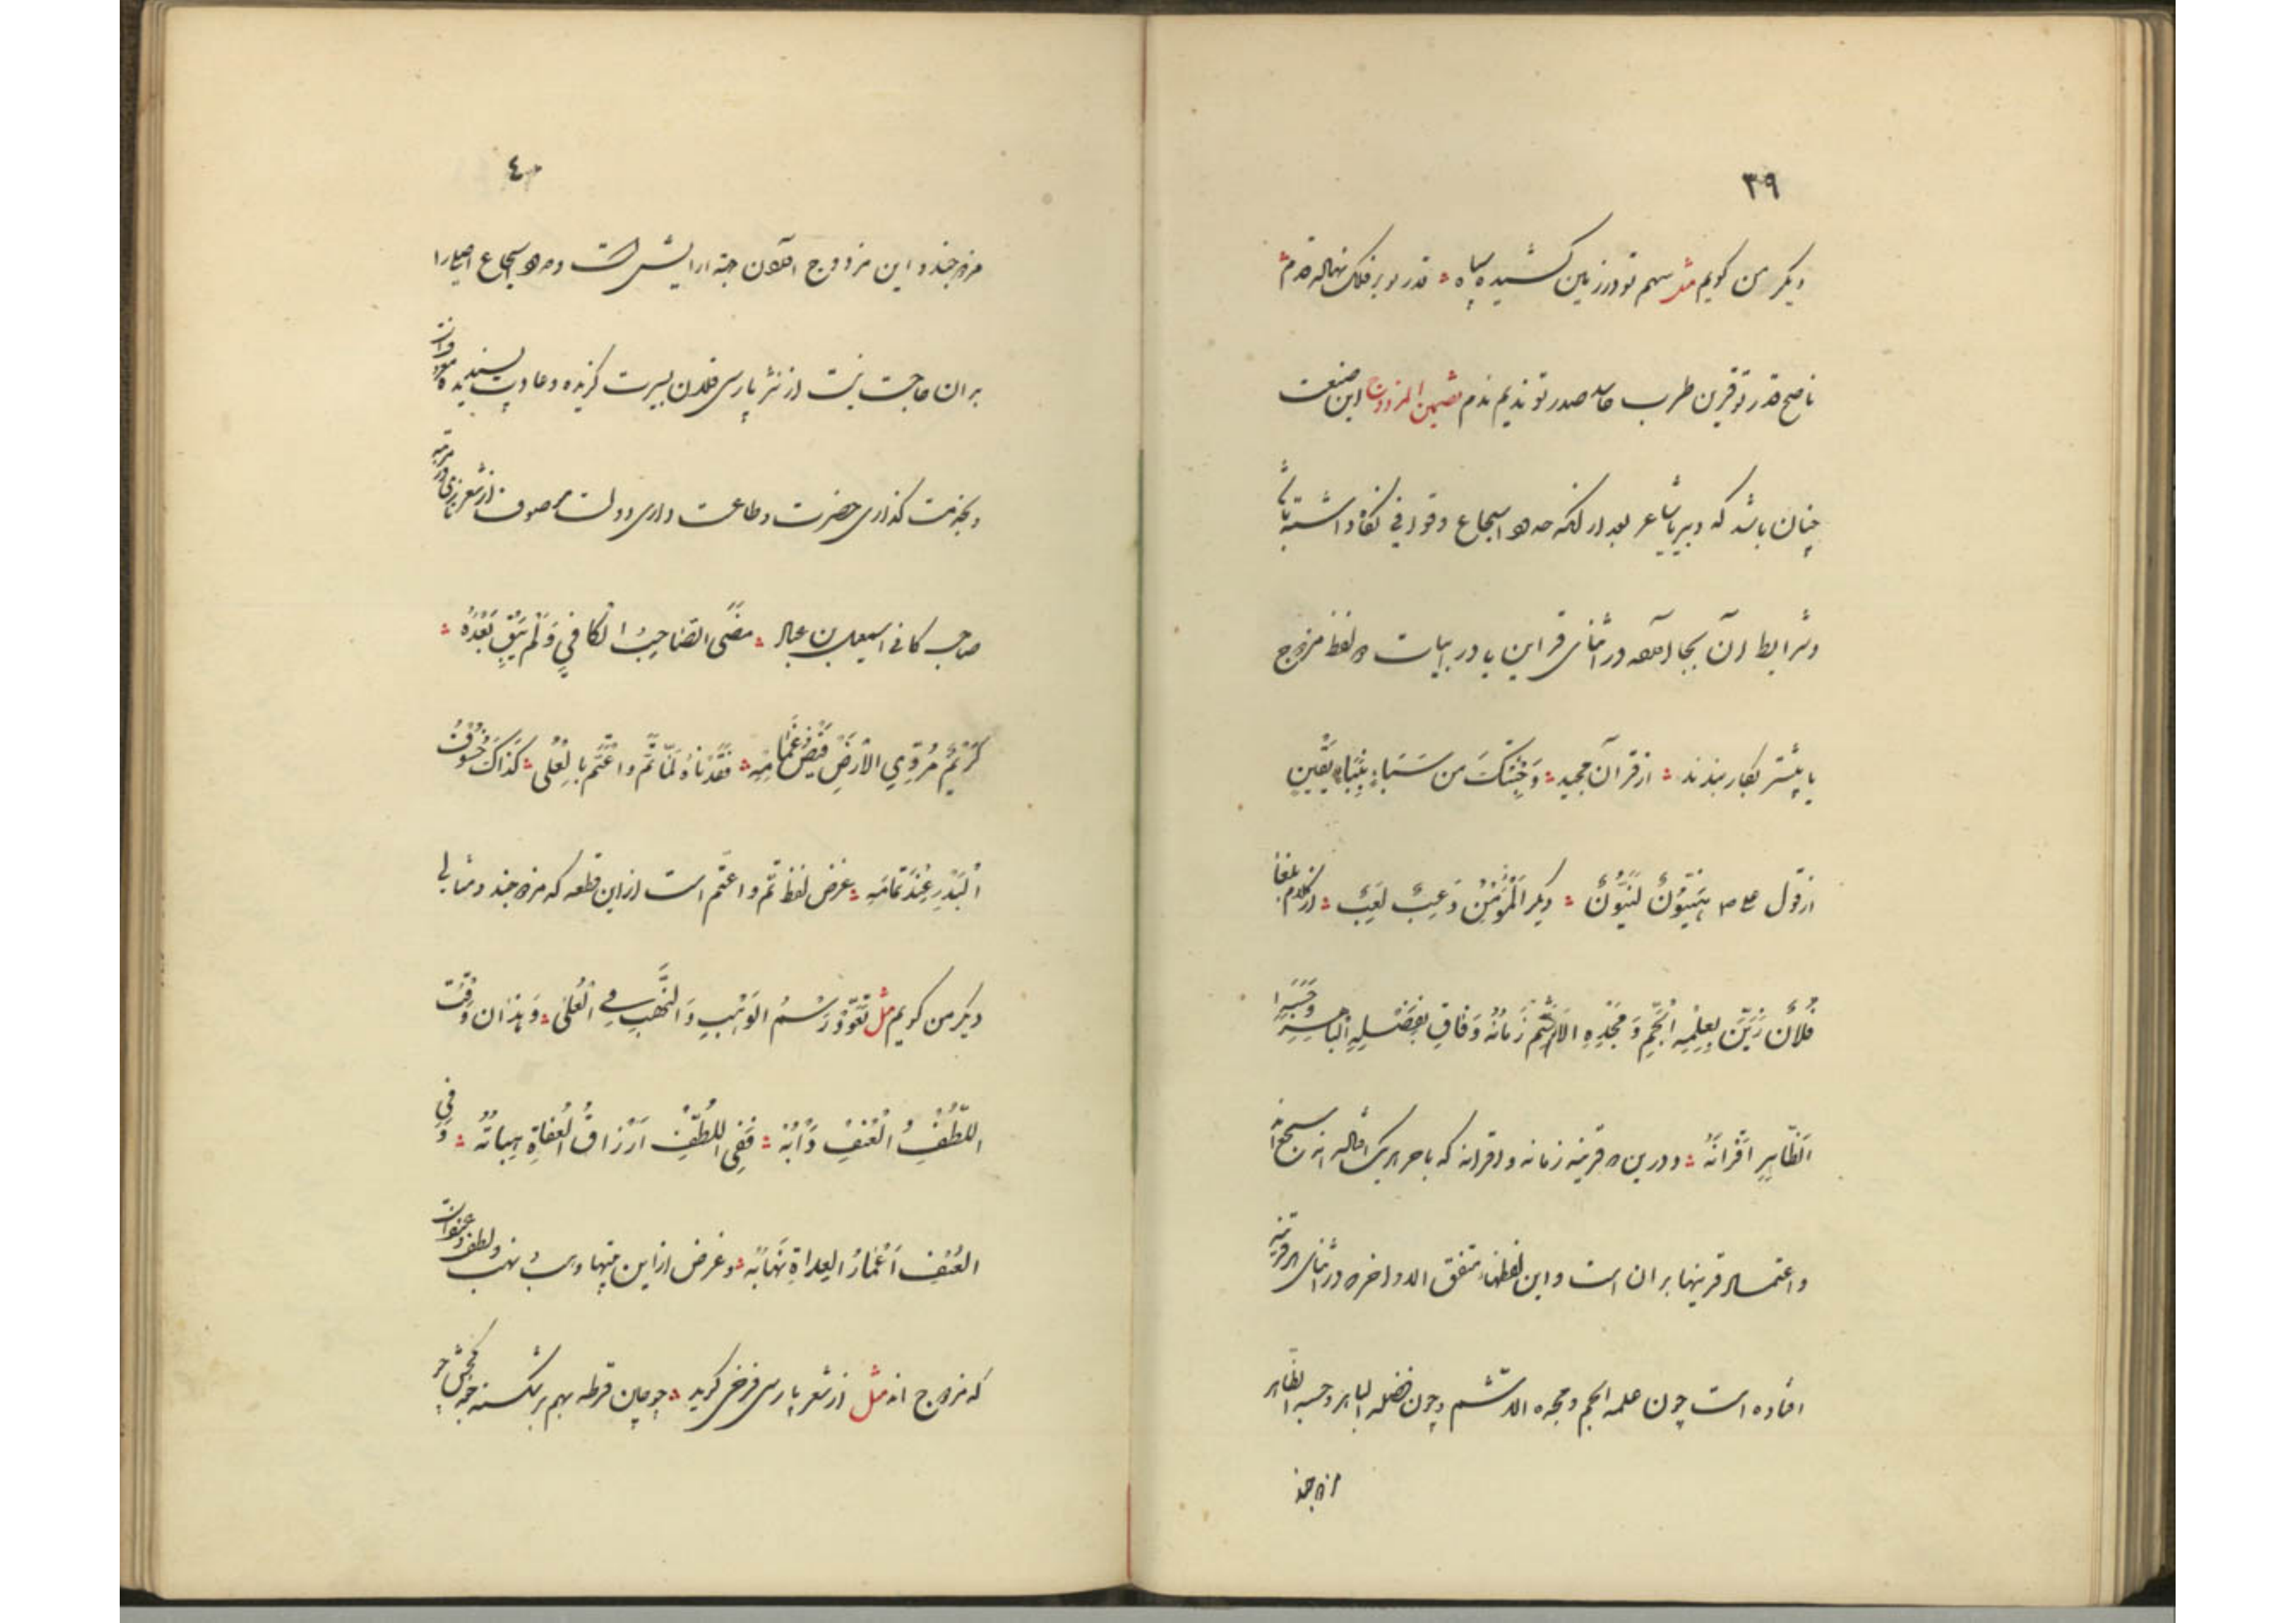 ٣٩
دیکر من کویم مثل سهم تو در زمین کشیده سپاه ؞ قدر تو بر فلک نهاله قدم ؞
ناصح قدر تو قرین طرب حاسد صدر تو ندیم ندم تضمین المزدوج این صنعت
چنان باشد که دبیر یا شاعر بعد از انکه حدود اسجاع و قوافی نکاه داشته باشد
و شرایط آن بجا آورده در اثنای قراین یا در ابیات دو لفظ مزدوج
یا بیشتر بکار بندند ؞ از قرآن مجید ؞ وَجِئْتُكَ من سَبَاءٍ بِنَبَاءٍ يَقِينٍ
از قول هَيِّنُونَ لَيِّنُونَ ؞ دیکر اَلْمُؤْمِنُ دَعِبٌ لَعِبٌ ؞ از کلام بلغا
فُلَانٌ زَيَّنَ بِعِلْمِهِ الْجَمِّ وَمَجْدِهِ الاَشَمِّ زَمَانَهُ وَفَاقَ بِفَضْلِهِ الْبَاهِرِ وَحَسَبِهِ
الظَّاهِرِ اَقْرَانَهُ ؞ و درین دو قرینه زمانه و اقرانه که باخر هریک سجع اند
و اعتماد قرینها بر آن است و این لفظها متفق الد و اخره در اثنای هر دو قرینه
افتاده است چون علمه الجم و مجده الاشم و چون فضله الباهر و حسبه الظاهر
مزدوجند
٤٠
مزدوجند و این مزدوج آوردن جهة آرایش است و حدود اسجاع را
بران حاجت نیست از نثر پارسی فلان بسیرت کزیده و عادت پسندیده معروفست
و بخدمت کذاری حضرت و طاعت داری دولت موصوف از شعر تازی در مرثیه
صاحب کافی اسمعیل بن عباد ؞ مَضَى الصَّاحِبُ الْكَافِي وَلَمْ يَبْقَ بَعْدَهُ ؞
كَرِيْمٌ يُرَوِّي الاَرْضَ فَيْضُ غَمَامِهِ ؞ فَقَدْنَاهُ لَمَّا تَمَّ وَاعْتَمَّ بِالْعُلَى ؞ كَذَاكَ خُسُوْفُ
الْبَدْرِ عِنْدَ تَمَامِهِ ؞ غرض لفظ تم و اعتم است ازین قطعه که مزدوجند و مثالی
دیکر من کویم مثل تَعَوَّدَ رَسْمُ الوَهْبِ وَالنَّهْبِ فِي الْعُلَى ؞ وَهٰذَان وَقْتَ
اللُّطْفِ وَالْعُنْفِ دَأْبُهُ ؞ فَفِي اللُّطْفِ اَرْزَاقُ الْعُفَاةِ هِبَاتُهُ ؞ وَفِي
العُنْفِ اَعْمَارُ العِدَاةِ نِهَابُهُ ؞ و غرض ازین بیتها وهب نهب و لطف و عنف است
که مزدوج اند مثل از شعر پارسی فرخی کوید ؞